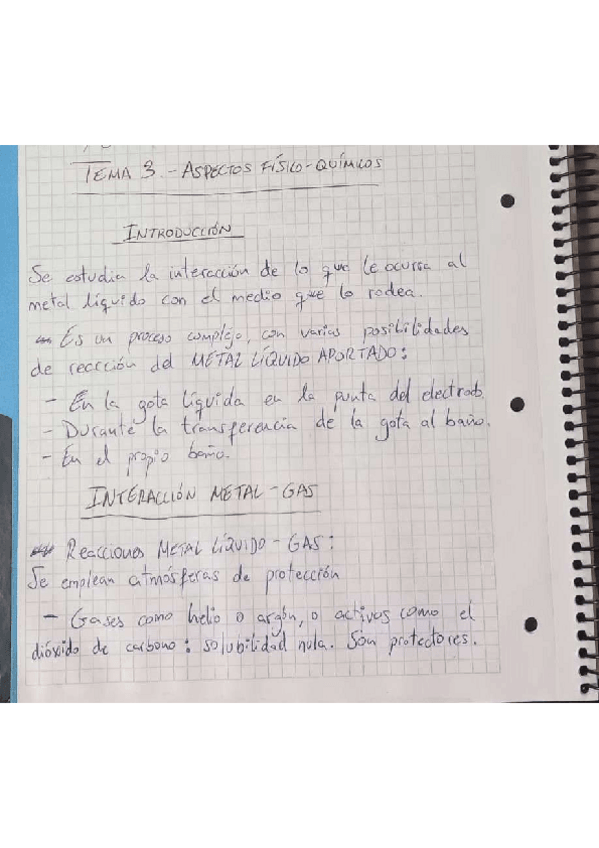 TEMA 3.-ASPECTOS FÍSICO-QUÍMICOS
INTRODUCCIÓN
Se estudia la interacción de lo que le ocurra al
metal líquido con el medio que lo rodea.
Es un proceso complejo, con varias posibilidades
de reacción del METAL LÍQUIDO APORTADO:
- En la gota líquida en la punta del electrodo.
- Durante la transferencia de la gota al baño.
- En el propio baño.
INTERACCIÓN METAL-GAS
Reacciones METAL LÍQUIDO-GAS:
Se emplean atmósferas de protección
- Gases como helio o argón, o activos como el
dióxido de carbono: solubilidad nula. Son protectores.